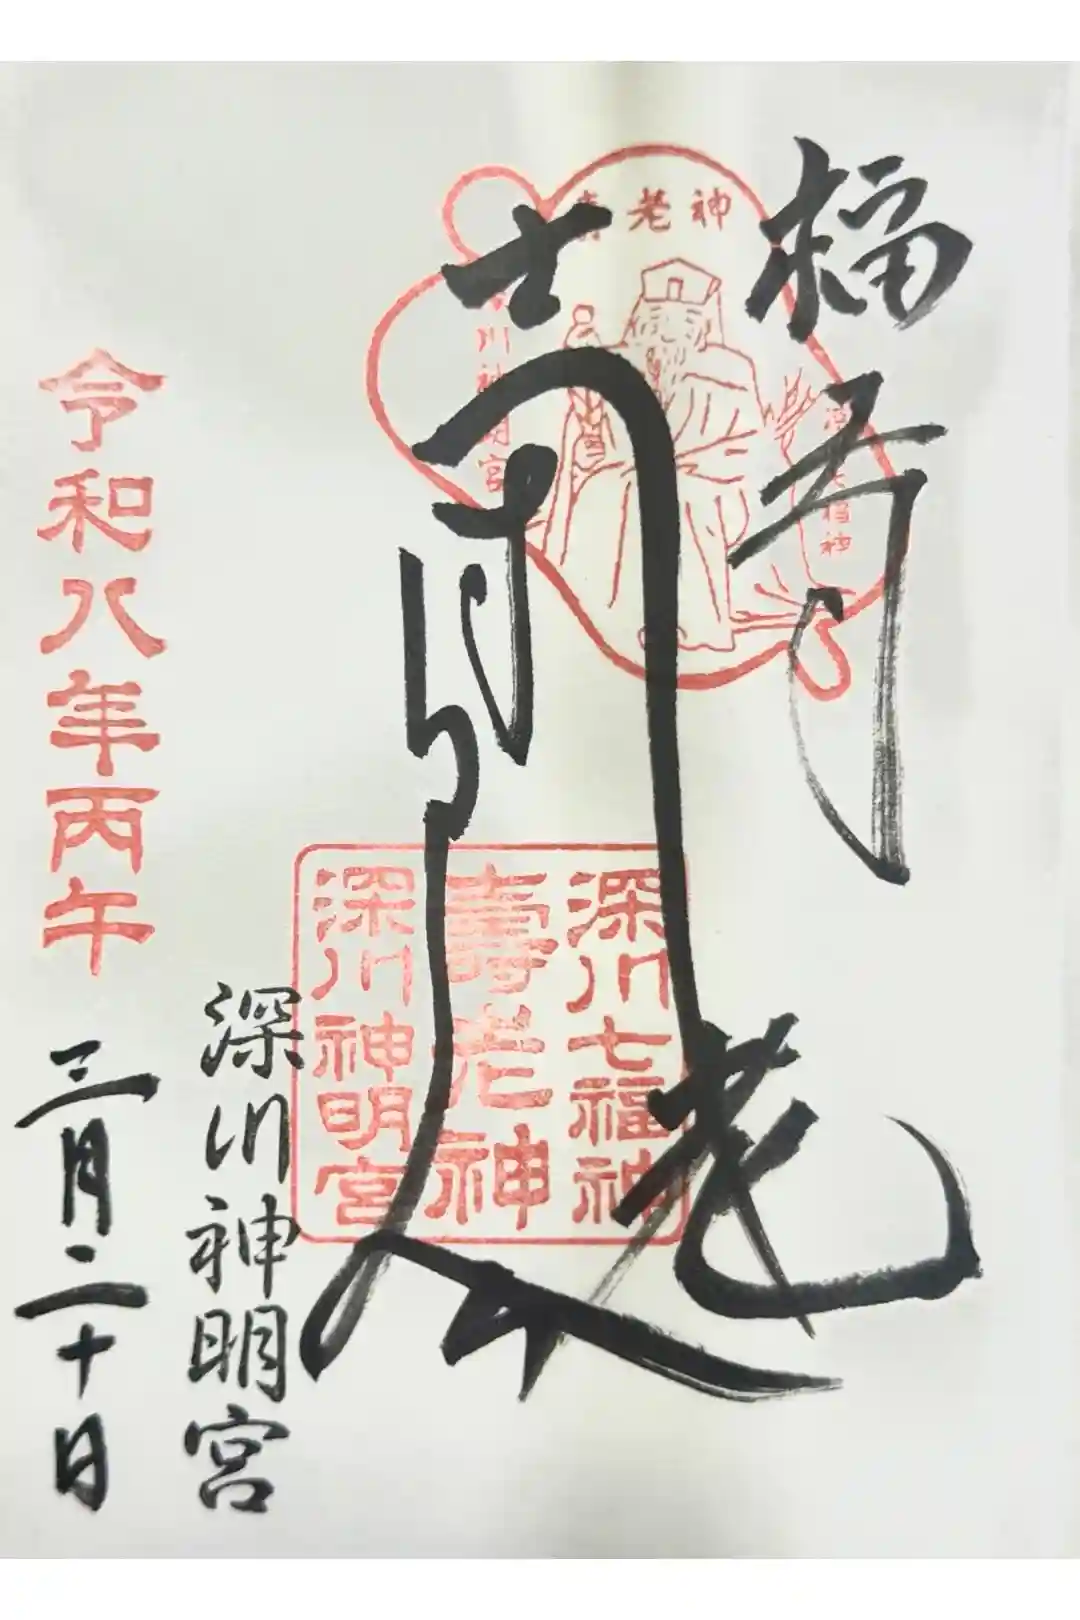 福寿
壽老神
深川七福神
深川神明宮
老
深川七福神
壽老神
深川神明宮
深川神明宮
令和八年丙午
三月二十日